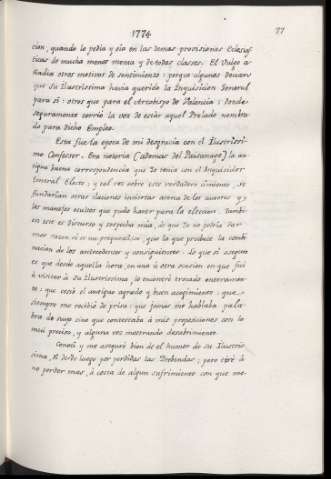 1774
77
cion, quando la pedia y sin en las demas provisiones Eclesiás-
ticas de mucha menor monta y de todas clases. El Vulgo a-
ñadia otros motivos de sentimiento: porque algunos decian
que Su Ilustrisima havia querido la Inquisicion General
para sí: otros que para el Arzobispo de Valencia: donde
seguramente corrió la voz de estàr aquel Prelado nombra-
do para dicho Empleo.
Esta fue la época de mi desgracia con el Ilustrisi-
mo Confesor. Era notoria (ademas del Paisanage) la an-
tigua buena correspondencia que Yo tenia con el Inquisidor
General Electo: y tal vez sobre este verdadero cimiento, se
fundarian otras ilaciones inciertas acerca de los asuntos y
los manejos ocultos que pudo haver para la eleccion. Tambi-
en este es discurso y sospecha mia, de que Yo no podria for-
mar razon ni es mi proposito; que lo que produce la combi-
nacion de los antecedentes y consiguientes: lo que sí asegu-
ro es que desde aquella hora, en una ú otra ocasion en que fuí
á visitar à Su Ilustrisima, lo encontré trocado enteramen-
te: que cesó el antiguo agrado y buen acogimiento: que
siempre me recibió de prisa: que jamas me hablaba pala-
bra de suyo sino que contestaba à mis proposiciones con lo
mui preciso, y alguna vez mostrando desabrimiento.
Conocí y me aseguré bien de el humor de Su Ilustri-
sima, dí desde luego por perdidas las Prebendas; pero tiré à
no perder mas, à costa de algun sufrimiento con que me-